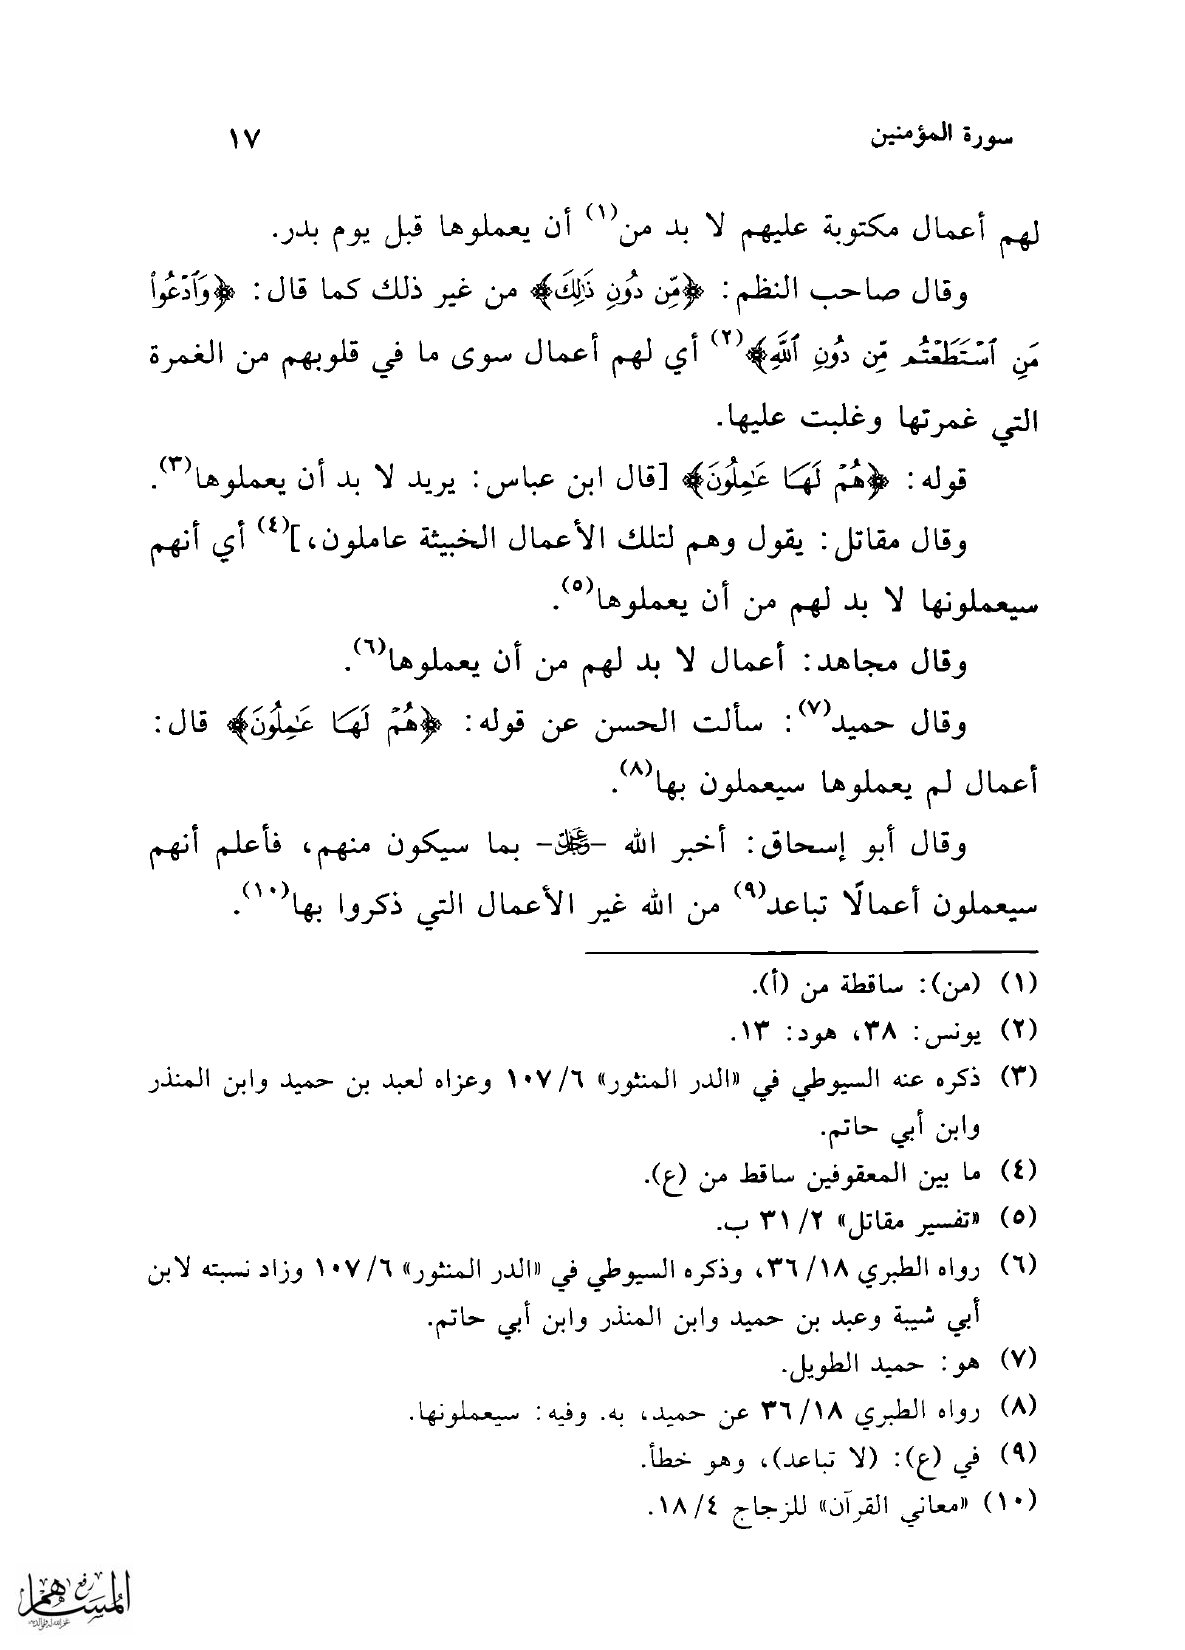 سورة المؤمنين
١٧
لهم أعمال مكتوبة عليهم لا بد من(١) أن يعملوها قبل يوم بدر.
وقال صاحب النظم: ﴿مِّن دُونِ ذَٰلِكَ﴾ من غير ذلك كما قال: ﴿وَٱدۡعُواْ
مَنِ ٱسۡتَطَعۡتُم مِّن دُونِ ٱللَّهِ﴾(٢) أي لهم أعمال سوى ما في قلوبهم من الغمرة
التي غمرتها وغلبت عليها.
قوله: ﴿هُمۡ لَهَا عَٰمِلُونَ﴾ [قال ابن عباس: يريد لا بد أن يعملوها(٣).
وقال مقاتل: يقول وهم لتلك الأعمال الخبيثة عاملون،](٤) أي أنهم
سيعملونها لا بد لهم من أن يعملوها(٥).
وقال مجاهد: أعمال لا بد لهم من أن يعملوها(٦).
وقال حميد(٧): سألت الحسن عن قوله: ﴿هُمۡ لَهَا عَٰمِلُونَ﴾ قال:
أعمال لم يعملوها سيعملون بها(٨).
وقال أبو إسحاق: أخبر الله -عز وجل- بما سيكون منهم، فأعلم أنهم
سيعملون أعمالًا تباعد(٩) من الله غير الأعمال التي ذكروا بها(١٠).
(١) (من): ساقطة من (أ).
(٢) يونس: ٣٨، هود: ١٣.
(٣) ذكره عنه السيوطي في «الدر المنثور» ٦/١٠٧ وعزاه لعبد بن حميد وابن المنذر
وابن أبي حاتم.
(٤) ما بين المعقوفين ساقط من (ع).
(٥) «تفسير مقاتل» ٢/٣١ ب.
(٦) رواه الطبري ١٨/٣٦، وذكره السيوطي في «الدر المنثور» ٦/١٠٧ وزاد نسبته لابن
أبي شيبة وعبد بن حميد وابن المنذر وابن أبي حاتم.
(٧) هو: حميد الطويل.
(٨) رواه الطبري ١٨/٣٦ عن حميد، به. وفيه: سيعملونها.
(٩) في (ع): (لا تباعد)، وهو خطأ.
(١٠) «معاني القرآن» للزجاج ٤/١٨.
رفع
المساهم